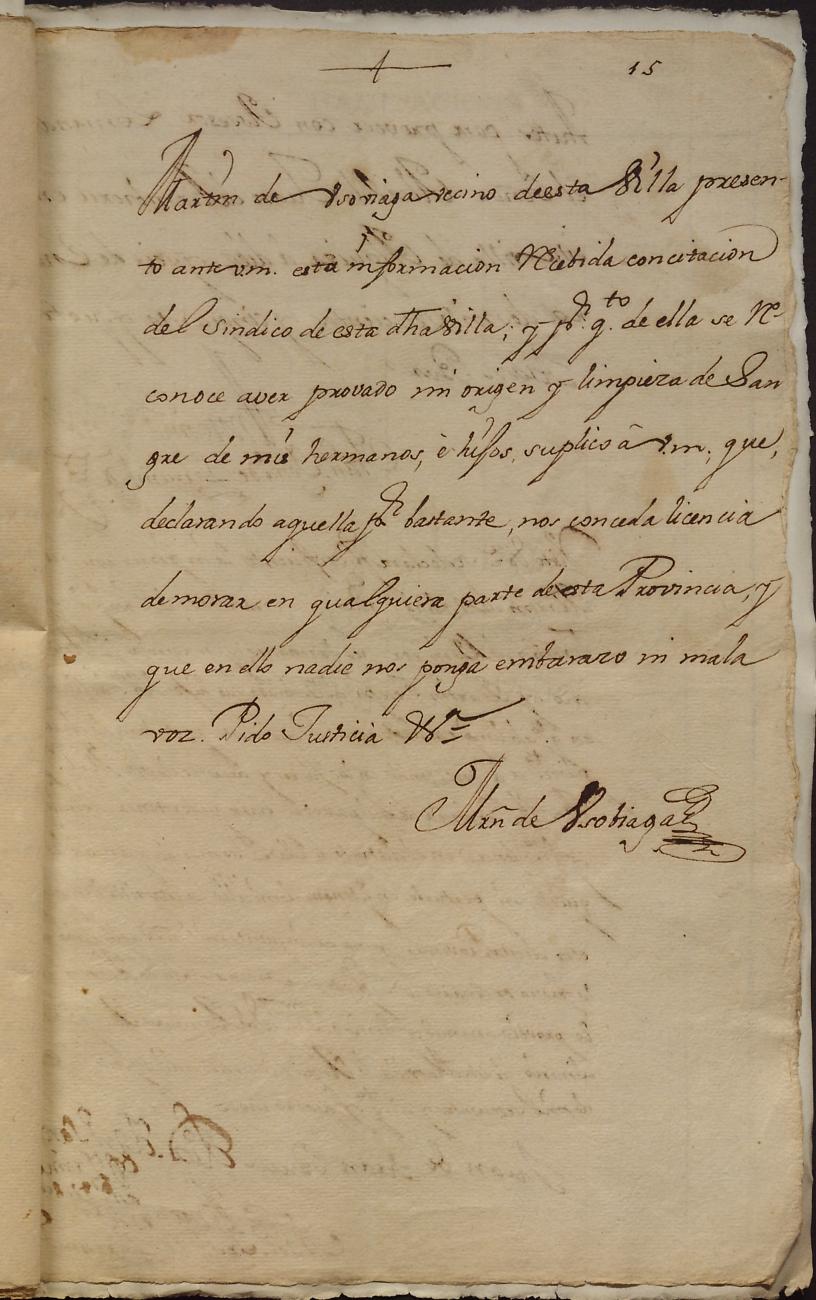 15
Martin de Usoviaga vecino de esta Villa presen-
to ante vm. esta informacion Recibida con citacion
del Sindico de esta dha Villa; y pr. qto. de ella se Re-
conoce aver provado mi origen y limpieza de San
gre de mis hermanos, è hijos, suplico â vm; que,
declarando aquella pr. bastante, nos conceda licencia
de morar en qualquiera parte de esta Provincia, y
que en ello nadie nos ponga embarazo ni mala
voz. Pido Justicia &ra
Mrñ de Usobiaga